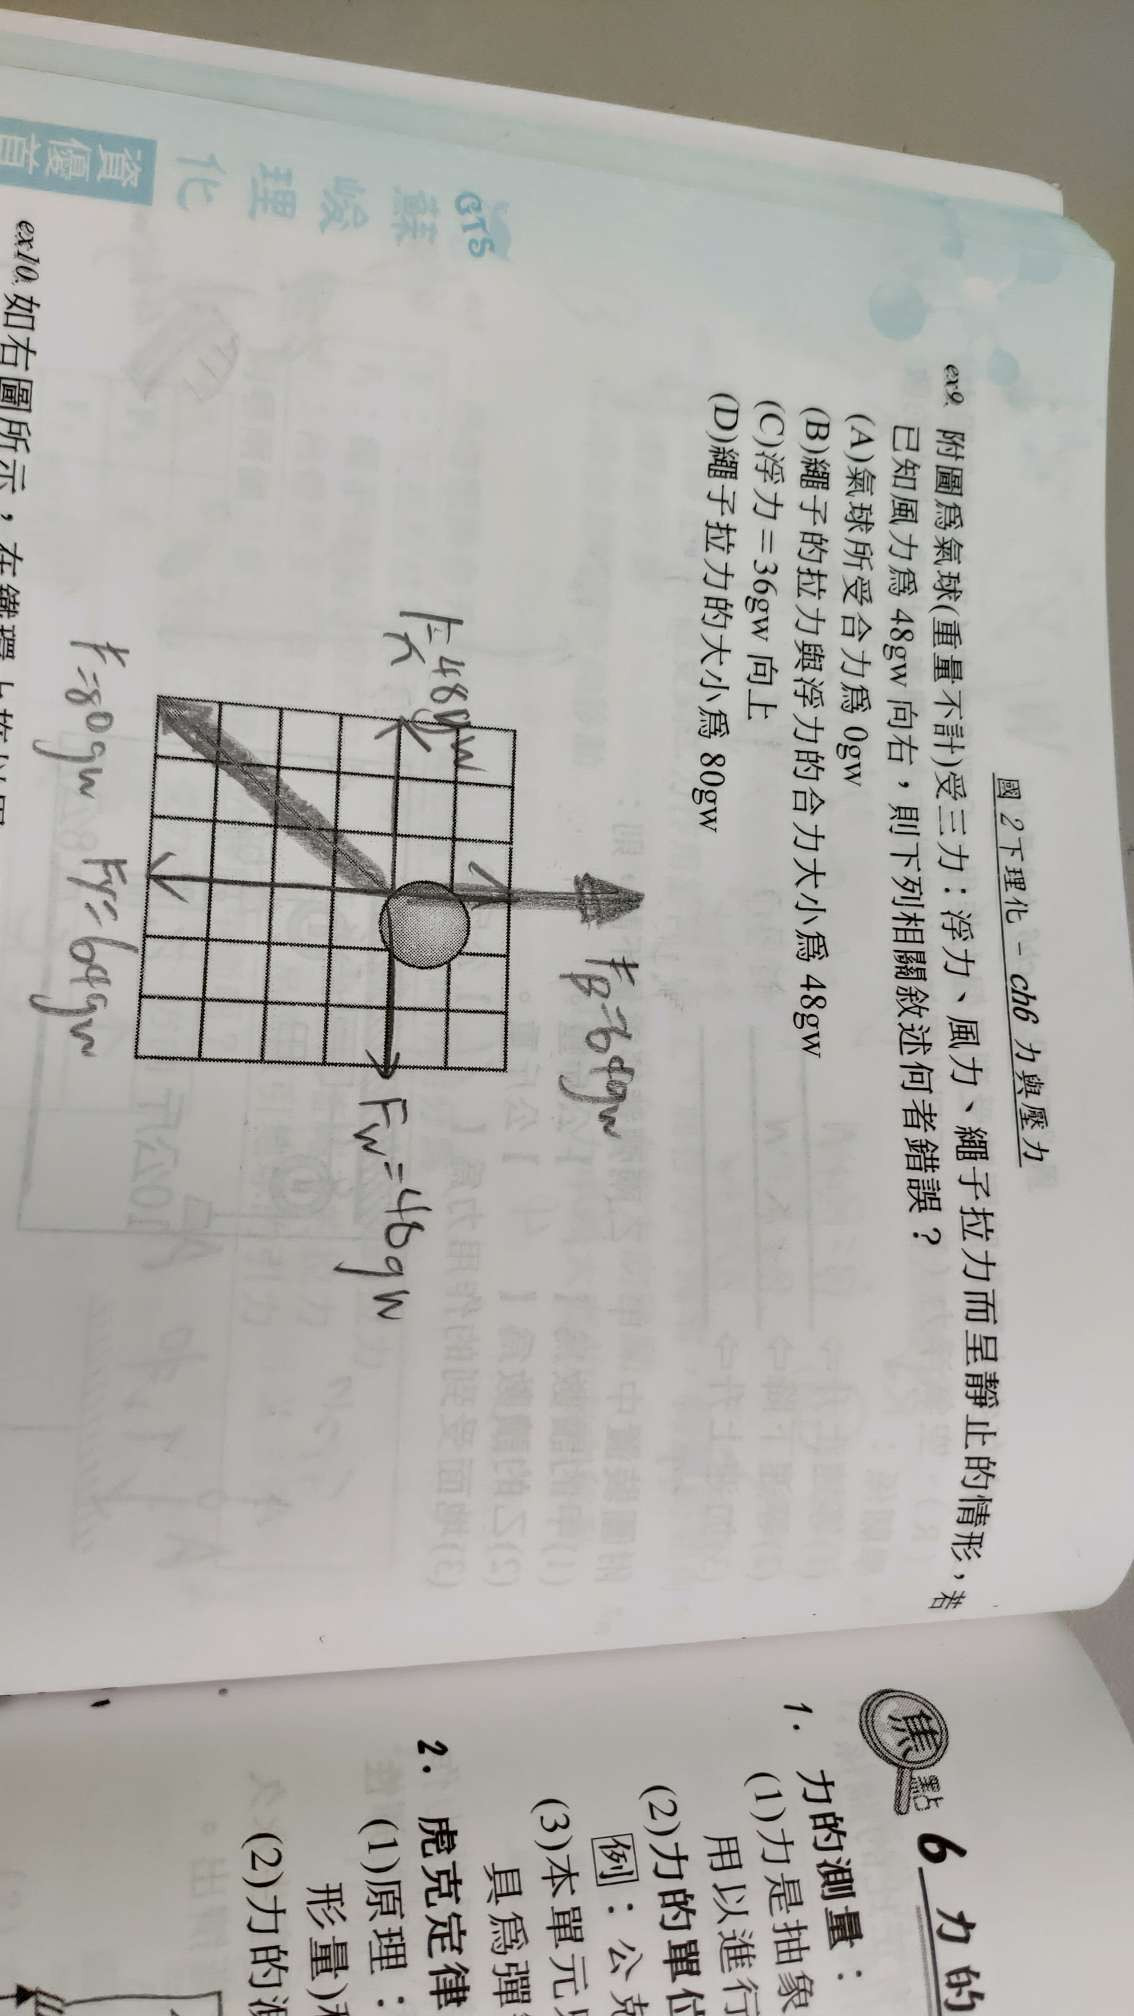 國2下理化 - ch6 力與壓力
ex9. 附圖為氣球(重量不計)受三力:浮力、風力、繩子拉力而呈靜止的情形,若
已知風力為 48gw 向右,則下列相關敘述何者錯誤?
(A)氣球所受合力為 0gw
(B)繩子的拉力與浮力的合力大小為 48gw
(C)浮力=36gw 向上
(D)繩子拉力的大小為 80gw
F_B=64gw
F_x=48gw
F_w=48gw
F=80gw
F_y=64gw
GTS
蘇峻理化
資優首
ex10.如右圖所示,在鐵環上
焦點 6 力的
1. 力的測量:
(1)力是抽象
用以進行
(2)力的單位
例:公克
(3)本單元
具為彈
2. 虎克定律
(1)原理:
形量)
(2)力的